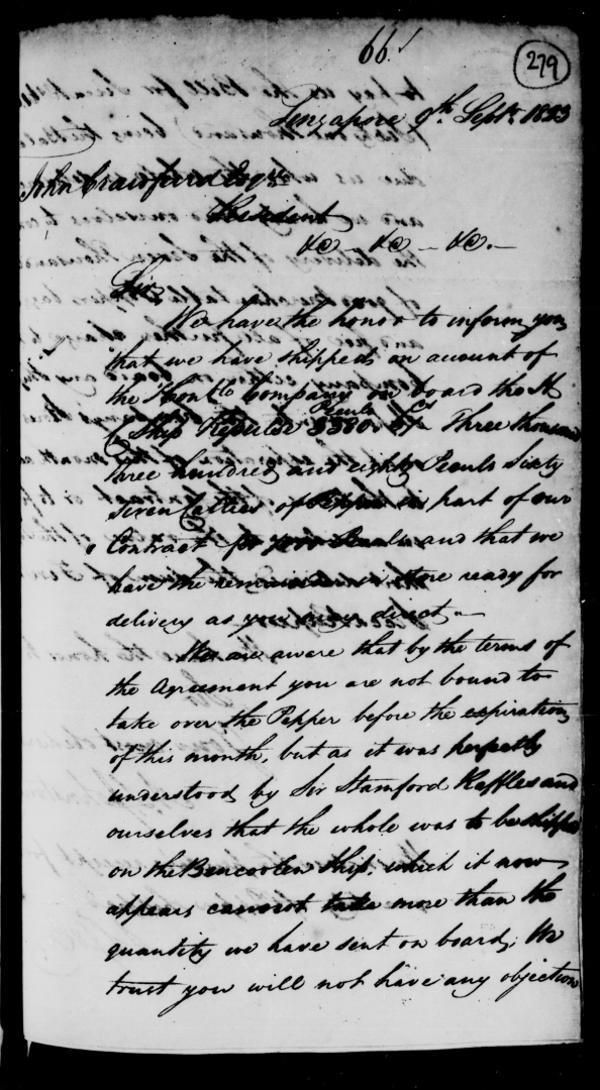 66.
279
Singapore 9th. Septr. 1823
John Crawfurd Esqre.
Resident
&c. &c. &c.
Sir,
We have the honor to inform you
that we have shipped on account of
the Honble Company on board the H
C Ship Regulus
Peculs Cs
3380. 67 Three thousand
three hundred and eighty Peculs Sixty
Seven Catties of Pepper in part of our
Contract for 7000 Peculs and that we
have the remainder in store ready for
delivery as you may direct.
We are aware that by the terms of
the Agreement you are not bound to
take over the Pepper before the expiration
of this month, but as it was perfectly
understood by Sir Stamford Raffles and
ourselves that the whole was to be shipped
on the Bencoolen Ship, which it now
appears cannot take more than the
quantity we have sent on board; We
trust you will not have any objection